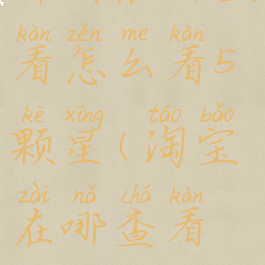 kàn zěn me kàn
看怎么看5
kē xīng táo bǎo
颗星(淘宝
zài nǎ chá kàn
在哪查看